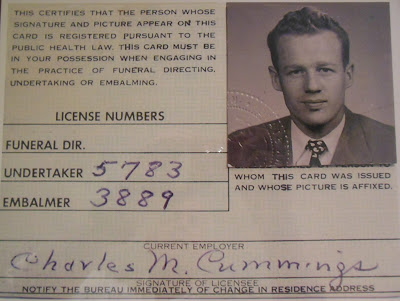 THIS CERTIFIES THAT THE PERSON WHOSE
SIGNATURE AND PICTURE APPEAR ON THIS
CARD IS REGISTERED PURSUANT TO THE
PUBLIC HEALTH LAW. THIS CARD MUST BE
IN YOUR POSSESSION WHEN ENGAGING
IN THE PRACTICE OF FUNERAL DIRECTING,
UNDERTAKING OR EMBALMING.
LICENSE NUMBERS
FUNERAL DIR.
UNDERTAKER 5783
EMBALMER 3889
WHOM THIS CARD WAS ISSUED
AND WHOSE PICTURE IS AFFIXED.
CURRENT EMPLOYER
Charles M. Cummings
SIGNATURE OF LICENSEE
NOTIFY THE BUREAU IMMEDIATELY OF CHANGE IN RESIDENCE ADDRESS